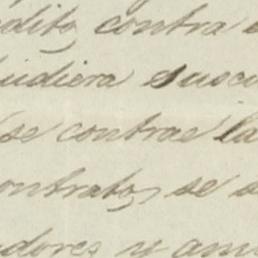 édito, contra e
udiera suscr
se contrae la
ontrato, se s
dores y am